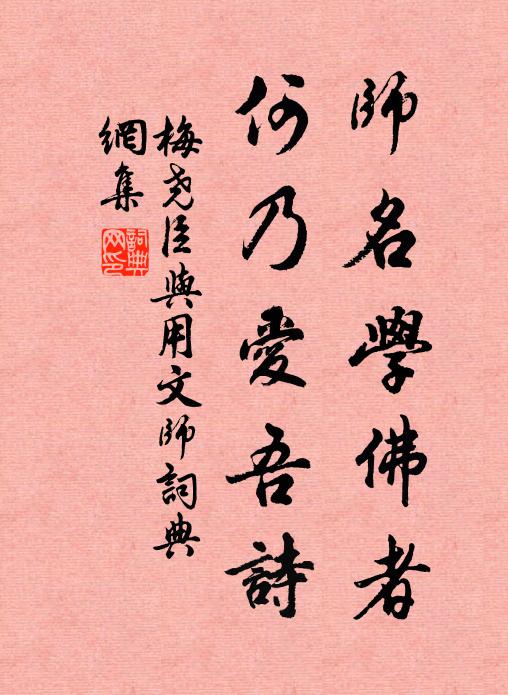 師名學佛者
何乃愛吾詩
梅堯臣與用文師詞典
網集
詞典
网印